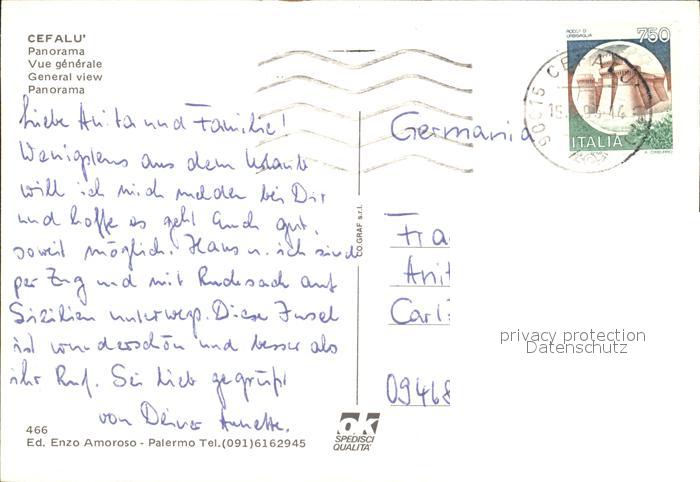 CEFALU'
Panorama
Vue générale
General view
Panorama
Liebe Anita und Familie!
Wenigstens aus dem Urlaub
will ich mich melden bei Dir
und hoffe es geht Euch gut,
soweit möglich. Hans u. ich sind
per Zug und mit Rucksack auf
Sizilien unterwegs. Diese Insel
ist wunderschön und besser als
ihr Ruf. Sei lieb gegrüßt
von Deiner Annette.
466
Ed. Enzo Amoroso - Palermo Tel.(091)6162945
CO.GRAF s.r.l.
ok
SPEDISCI
QUALITA'
ROCCA DI
URBISAGLIA
750
ITALIA
90015 CEFALU'
Germania
Fra
Anit
Carl
09468
privacy protection
Datenschutz